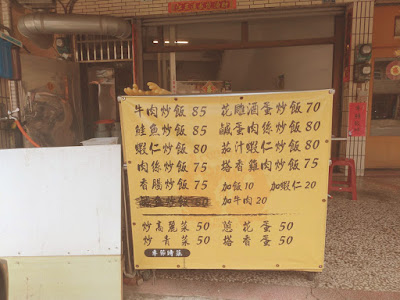 牛肉炒飯 85 花雕滴蛋炒飯 70
鮭魚炒飯 85 鹹蛋肉絲炒飯 80
蝦仁炒飯 80 茄汁蝦仁炒飯 80
肉絲炒飯 75 塔香雞肉炒飯 75
香腸炒飯 75 加飯 10 加蝦仁 20
炒飯 80 加牛肉 20
炒高麗菜 50 蔥花蛋 50
炒青菜 50 塔香蛋 50